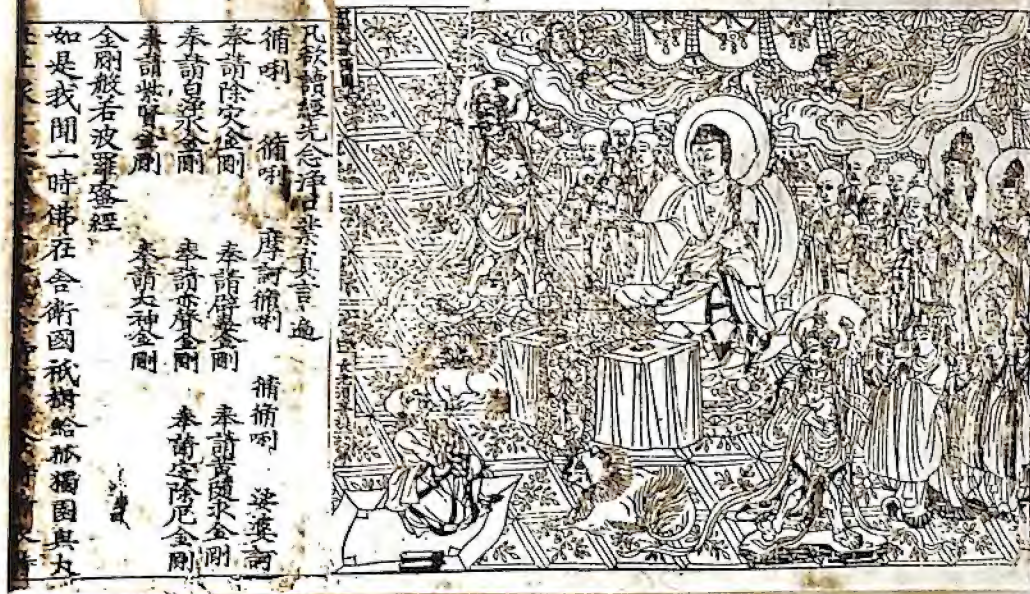 凡欲讀經先念淨口業真言遍
脩唎 脩唎 摩訶脩唎 脩脩唎 娑婆訶
奉請除灾金剛 奉請辟毒金剛 奉請黄隨求金剛
奉請白淨水金剛 奉請赤聲金剛 奉請定除厄金剛
奉請紫賢金剛 奉請大神金剛
金剛般若波羅蜜經
如是我聞一時佛在舍衛國祇樹給孤獨園與大